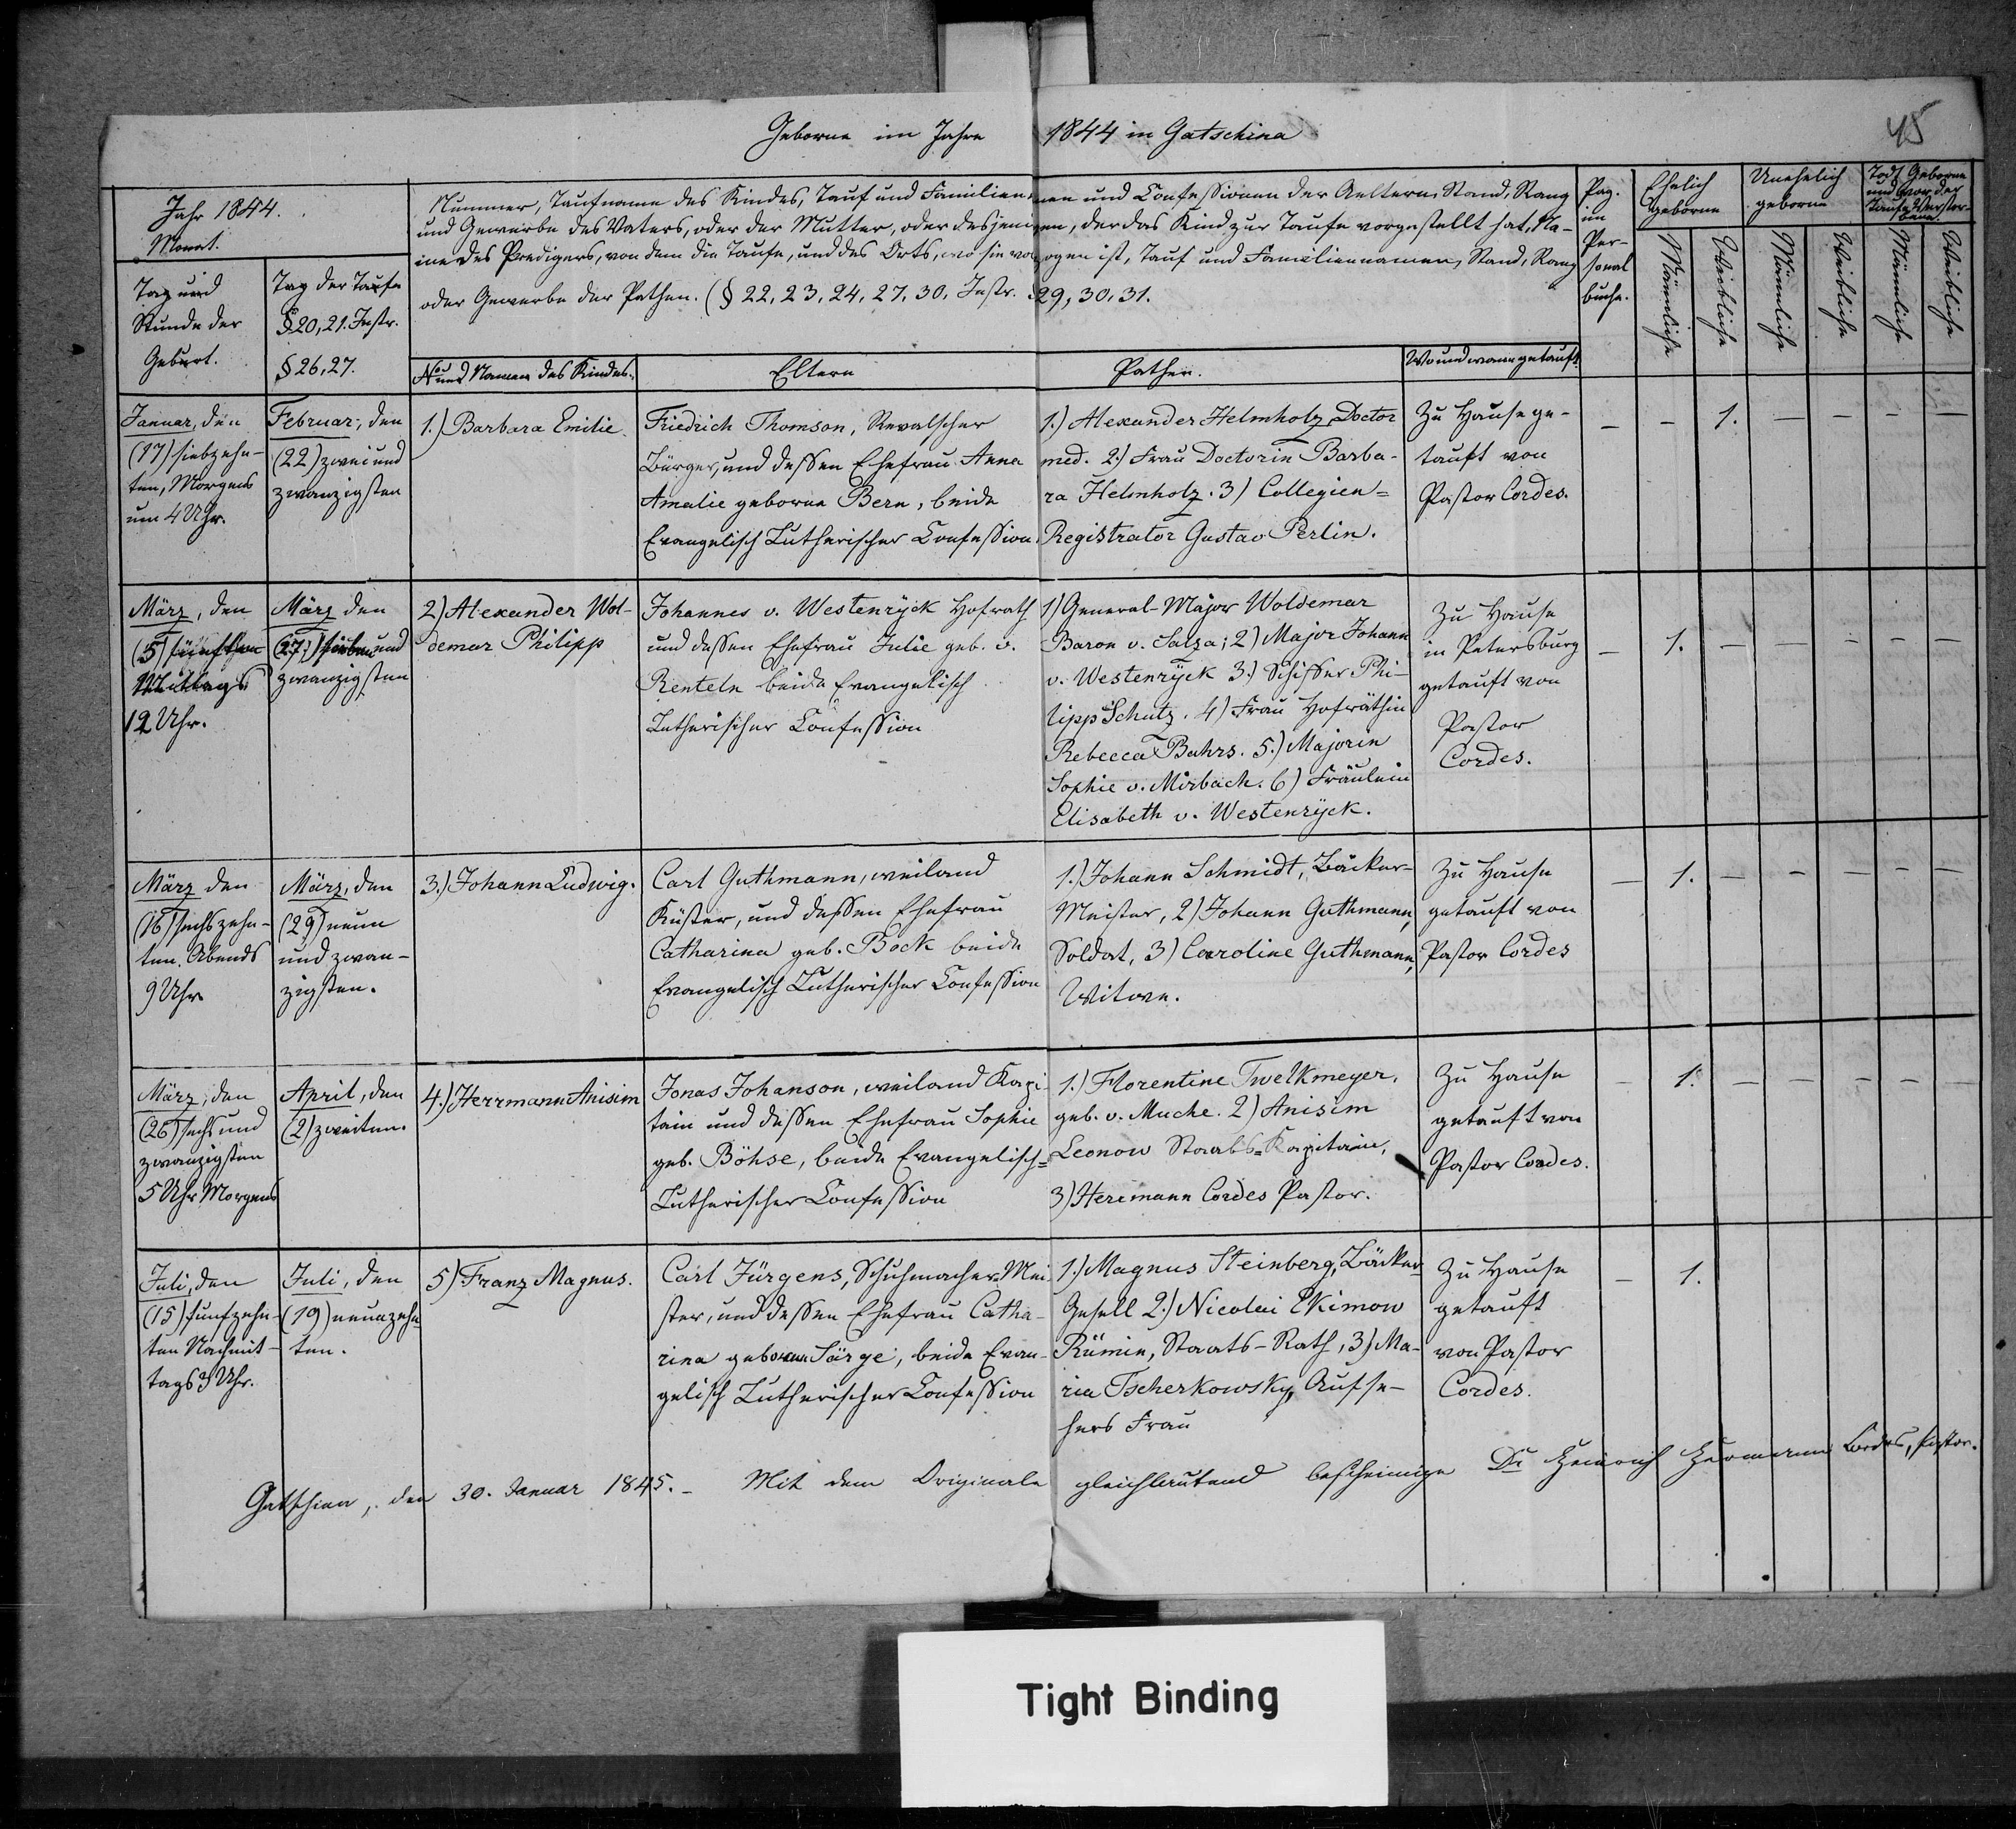 Geborne im Jahre 1844 in Gatschina
45
Jahr 1844.
Monat.
Tag und
Stunde der
Geburt.
Tag der Taufe
§ 20, 21. Instr.
§ 26, 27.
Nummer, Taufname des Kindes, Tauf und Familiennamen und Confessionen der Aeltern, Stand, Rang
und Gewerbe des Vaters, oder der Mutter, oder desjenigen, der das Kind zur Taufe vorgestellt hat, Na-
me des Predigers, von dem die Taufe, und des Orts, wo sie vollzogen ist, Tauf und Familiennamen, Stand, Rang
oder Gewerbe der Pathen. (§ 22, 23, 24, 27, 30, Instr. 29, 30, 31.
No und Namen des Kindes.
Eltern
Pathen.
Wo und wann getauft
Pag.
im
Per-
sonal
buche.
Ehelich
geborne
Unehelich
geborne
Todt Geborne
und vor der
Taufe Verstor-
bene.
Männliche
Weibliche
Männliche
Weibliche
Männliche
Weibliche
Januar, den
(17) siebzehn-
ten, Morgens
um 4 Uhr.
Februar, den
(22) zwei und
zwanzigsten
1.) Barbara Emilie.
Friedrich Thomson, Revalscher
Bürger, und dessen Ehefrau Anna
Amalie geborne Bern, beide
Evangelisch Lutherischer Confession.
1.) Alexander Helmholz, Doctor
med. 2.) Frau Doctorin Barba-
ra Helmholz. 3) Collegien=
Registrator Gustav Perlin.
Zu Hause ge-
tauft von
Pastor Cordes.
– – 1. – – – –
März, den
(5) fünften
Mittags
12 Uhr.
März den
(27) sieben und
zwanzigsten
2) Alexander Wol-
demar Philipp
Johannes v. Westenryck Hofrath
und dessen Ehefrau Julie geb. v.
Renteln beide Evangelisch
Lutherischer Confession
1) General-Major Woldemar
Baron v. Salza; 2) Major Johann
v. Westenryck 3.) Schiffer Phi-
lipp Schutz. 4) Frau Hofräthin
Rebecca Bahrs. 5.) Majorin
Sophie v. Mirbach. 6) Fräulein
Elisabeth v. Westenryck.
Zu Hause
in Petersburg
getauft von
Pastor
Cordes.
– 1. – – – – –
März den
(16) sechszehn-
ten. Abends
9 Uhr
März, den
(29) neun
und zwan-
zigsten.
3.) Johann Ludwig.
Carl Guthmann, weiland
Küster, und dessen Ehefrau
Catharina geb. Bock beide
Evangelisch Lutherischer Confession
1.) Johann Schmidt, Bäcker-
Meister, 2) Johann Guthmann,
Soldat, 3) Caroline Guthmann,
Witwe.
Zu Hause
getauft von
Pastor Cordes
– 1. – – – – –
März, den
(26) sechs und
zwanzigsten
5 Uhr Morgens
April, den
(2) zweiten.
4.) Herrmann Anisim
Jonas Johanson, weiland Kapi-
tain und dessen Ehefrau Sophie
geb. Böhse, beide Evangelisch=
Lutherischer Confession
1.) Florentine Twelkmeyer,
geb. v. Muche. 2) Anisim
Leonow Staabs=Kapitain,
3) Herrmann Cordes Pastor.
Zu Hause
getauft von
Pastor Cordes.
– 1. – – – – –
Juli, den
(15) funfzehn-
ten Nachmit-
tags 3 Uhr.
Juli, den
(19) neunzehn
ten.
5) Franz Magnus.
Carl Jürgens, Schuhmacher=Mei-
ster, und dessen Ehefrau Catha-
rina geborne Särge, beide Evan-
gelisch Lutherischer Confession
1.) Magnus Steinberg, Bäcker-
Gesell 2.) Nicolai Ekimow
Rümin, Staats-Rath, 3) Ma-
ria Tscherkowsky, Aufse-
hers Frau
Zu Hause
getauft
von Pastor
Cordes.
– 1.
Gatschina, den 30. Januar 1845. – Mit dem Originale gleichlautend bescheinige Dr Heinrich Hermann Cordes, Pastor.
Tight Binding